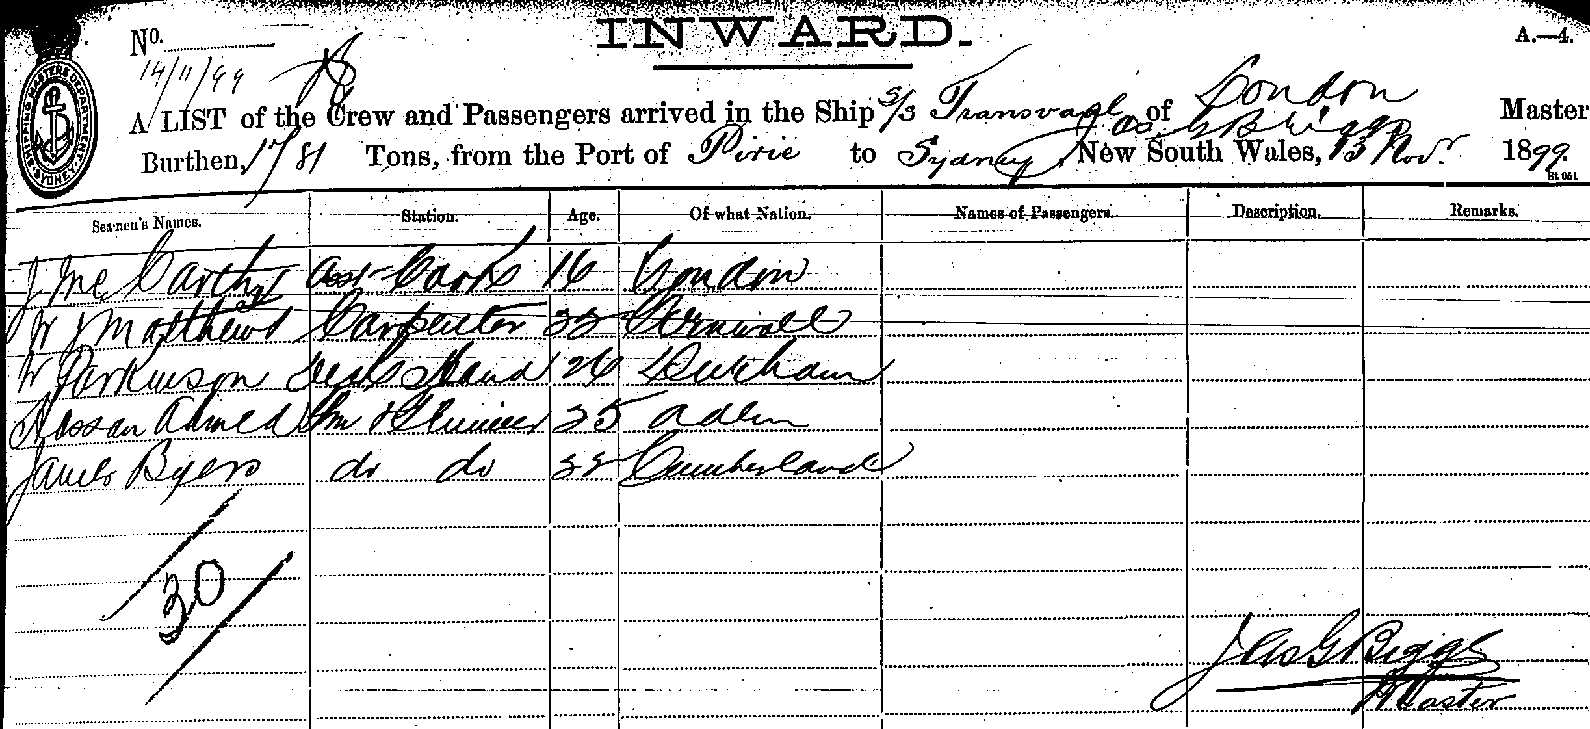 INWARD.
A.—4.
No.
14/11/99
SHIPPING MASTERS DEPARTMENT SYDNEY
A LIST of the Crew and Passengers arrived in the Ship S/S Transvaal of London Jas G Biggs Master
Burthen, 1781 Tons, from the Port of Pirie to Sydney, New South Wales, 13 Nov. 1899.
St 051
Seamen's Names. Station. Age. Of what Nation. Names of Passengers. Description. Remarks.
J McCarthy Asst Cook 16 London
W J Matthews Carpenter 22 Cornwall
W Parkinson Deck Hand 26 Durham
Hassan Ahmed Fm & Trimmer 25 Aden
James Byers do do 22 Cumberland
30
Jas G Biggs
Master